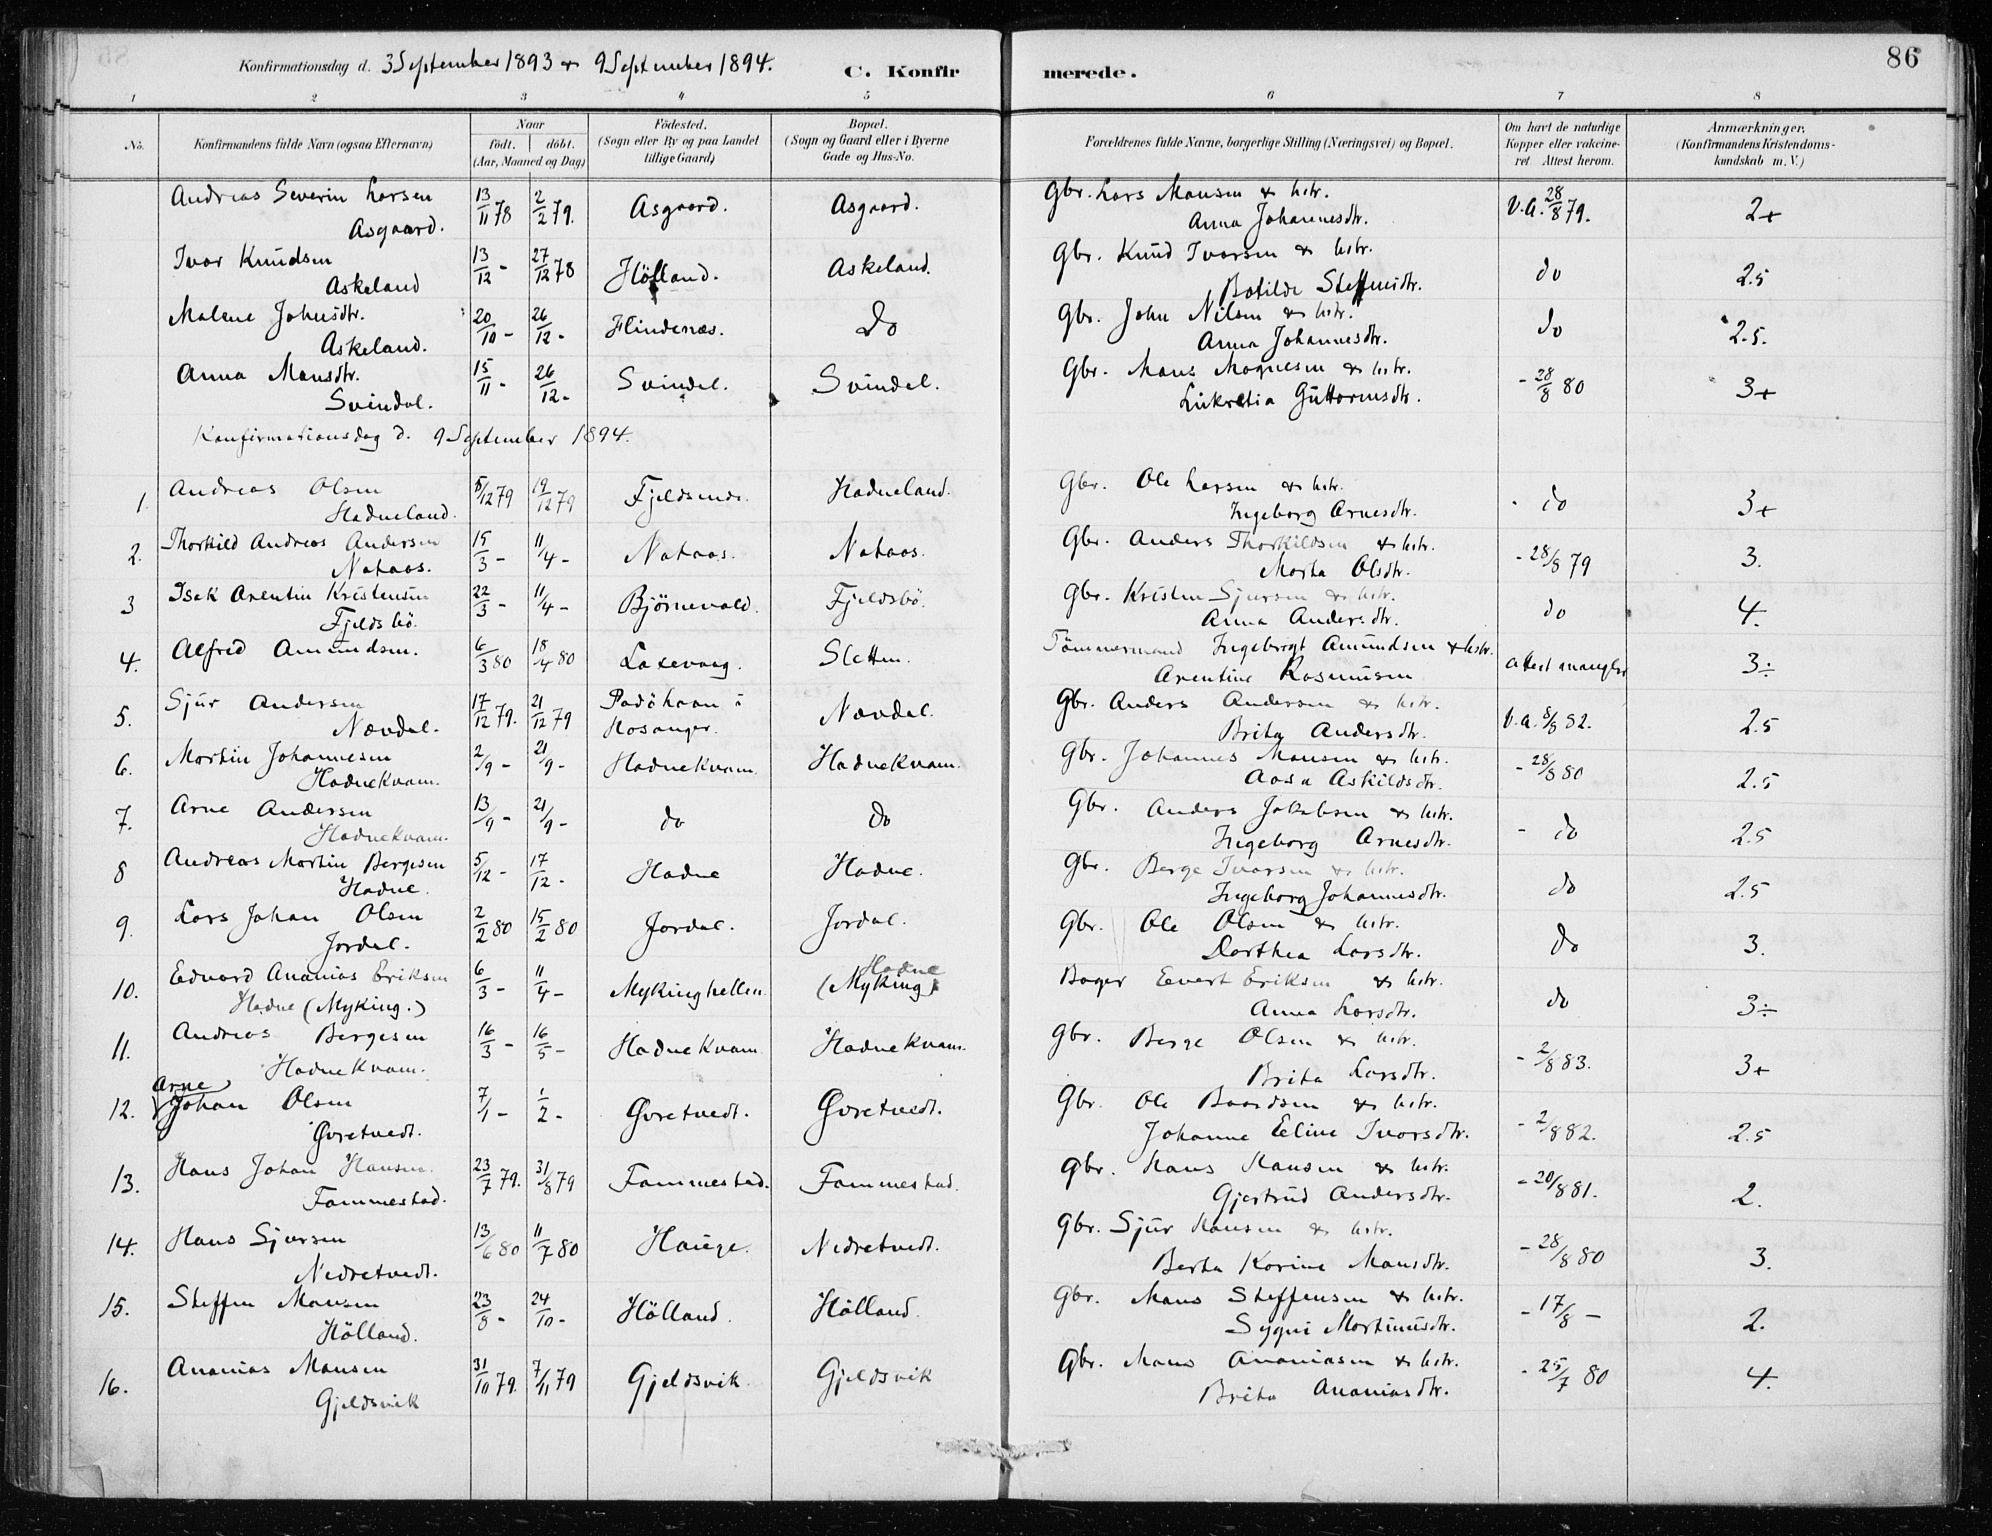 Konfirmationsdag d. 3 September 1893 & 9 September 1894. C. Konfirmerede. 86
1 2 3 4 5 6 7 8
No. Konfirmandens fulde Navn (ogsaa Efternavn) Naar født. døbt. (Aar, Maaned og Dag) Fødested. (Sogn eller By og paa Landet tillige Gaard) Bopæl. (Sogn og Gaard eller i Byerne Gade og Hus-No. Forældrenes fulde Navne, borgerlige Stilling (Næringsvei) og Bopæl. Om havt de naturlige Kopper eller vakcineret Attest herom. Anmærkninger, (Konfirmandens Kristendomskundskab m. V.)
Andreas Severin Larsen 13/11 78 2/2 79. Asgaard. Asgaard. Gbr. Lars Monsen & hstr. V.a. 28/8 79. 2+
Asgaard. Anna Johannesdtr.
Ivar Knudsen 13/12 - 27/12 78 Hölland. Askeland. Gbr. Knud Ivarsen & hstr. do 2.5
Askeland Botilde Steffensdtr.
Malene Johnsdtr. 20/10 - 26/12 - Hindenæs. do Gbr. John Nilsen & hstr. do 2.5.
Askeland. Anna Johannesdtr.
Anna Monsdtr. 15/11 - 26/12 - Svindal. Svindal. Gbr. Mons Mognesen & hstr. - 28/8 80 3+
Svindal. Lukretia Guttormsdtr.
Konfirmationsdag d. 9 September 1894.
1. Andreas Olsen 5/12 79 19/12 79 Fjeldsende. Hadneland. Gbr. Ole Larsen & hstr. - do 3+
Hadneland. Ingeborg Arnesdtr.
2. Thorkild Andreas Andersen 15/3 - 11/4 - Nataas. Nataas. Gbr. Anders Thorkildsen & hstr. - 28/8 79 3.
Nataas. Marta Olsdtr.
3 Isak Arentin Kristensen 22/3 - 11/4 - Björnevold. Fjeldsbö. Gbr. Kristen Sjursen & hstr. do 4.
Fjeldsbö. Anna Andersdtr.
4. Alfred Amundsen. 6/3 80 18/4 80 Laxevaag. Sletten. Tömmermand Ingebrigt Amundsen & hstr. attest mangler 3÷
Arentine Rasmusen
5. Sjur Andersen 17/12 79. 21/12 79 Padöhavn i Nævdal. Gbr. Anders Andersen & hstr. V.a. 8/8 82. 2.5
Nævdal. Hosanger. Brita Andersdtr.
6. Martin Johannesen 2/9 - 21/9 - Hadnekvam. Hadnekvam. Gbr. Johannes Monsen & hstr. - 28/8 80 2.5
Hadnekvam. Aasa Askildsdtr.
7. Arne Andersen 13/9 - 21/9 - do do Gbr. Anders Jakobsen & hstr. - do 2.5
Hadnekvam. Ingeborg Arnesdtr.
8 Andreas Martin Bergesen 5/12 - 17/12 - Hadne Hadne. Gbr. Berge Ivarsen & hstr. do 2.5
Hadne. Ingeborg Johannesdtr.
9. Lars Johan Olsen 2/2 80 15/2 80 Jordal. Jordal. Gbr. Ole Olsen & hstr. do 3.
Jordal. Dorthea Larsdtr.
10. Edvard Ananias Eriksen 6/3 - 11/4 - Mykinghellen. Hadne (Myking) Bager Evert Eriksen & hstr. do 3÷
Hadne (Myking.) Anna Larsdtr.
11. Andreas Bergesen 16/3 - 16/5 - Hadnekvam. Hadnekvam. Gbr. Berge Olsen & hstr. - 2/8 83. 3+
Hadnekvam. Brita Larsdtr.
Arne
12. Johan Olsen 7/1 - 1/2 - Øvretvedt. Øvretvedt. Gbr. Ole Baardsen & hstr. - 2/8 82. 2.5
Øvretvedt. Johanne Eline Ivarsdtr.
13. Hans Johan Hansen. 23/7 79. 31/8 79 Fammestad. Fammestad. Gbr. Hans Hansen & hstr. - 20/8 81. 2.
Fammestad. Gjertrud Andersdtr.
14. Hans Sjursen 13/6 80 11/7 80 Hauge. Nedretvedt. Gbr. Sjur Hansen & hstr. - 28/8 80 3.
Nedretvedt. Berta Korine Monsdtr.
15. Steffen Monsen 23/8 - 24/10 - Hölland. Hölland. Gbr. Mons Steffensen & hstr. - 17/8 - 2.
Hölland. Sygni Martinusdtr.
16. Ananias Monsen 31/10 79. 7/11 79 Gjeldsvik. Gjeldsvik Gbr. Mons Ananiasen & hstr. - 25/7 80 4.
Gjeldsvik Brita Ananiasdtr.